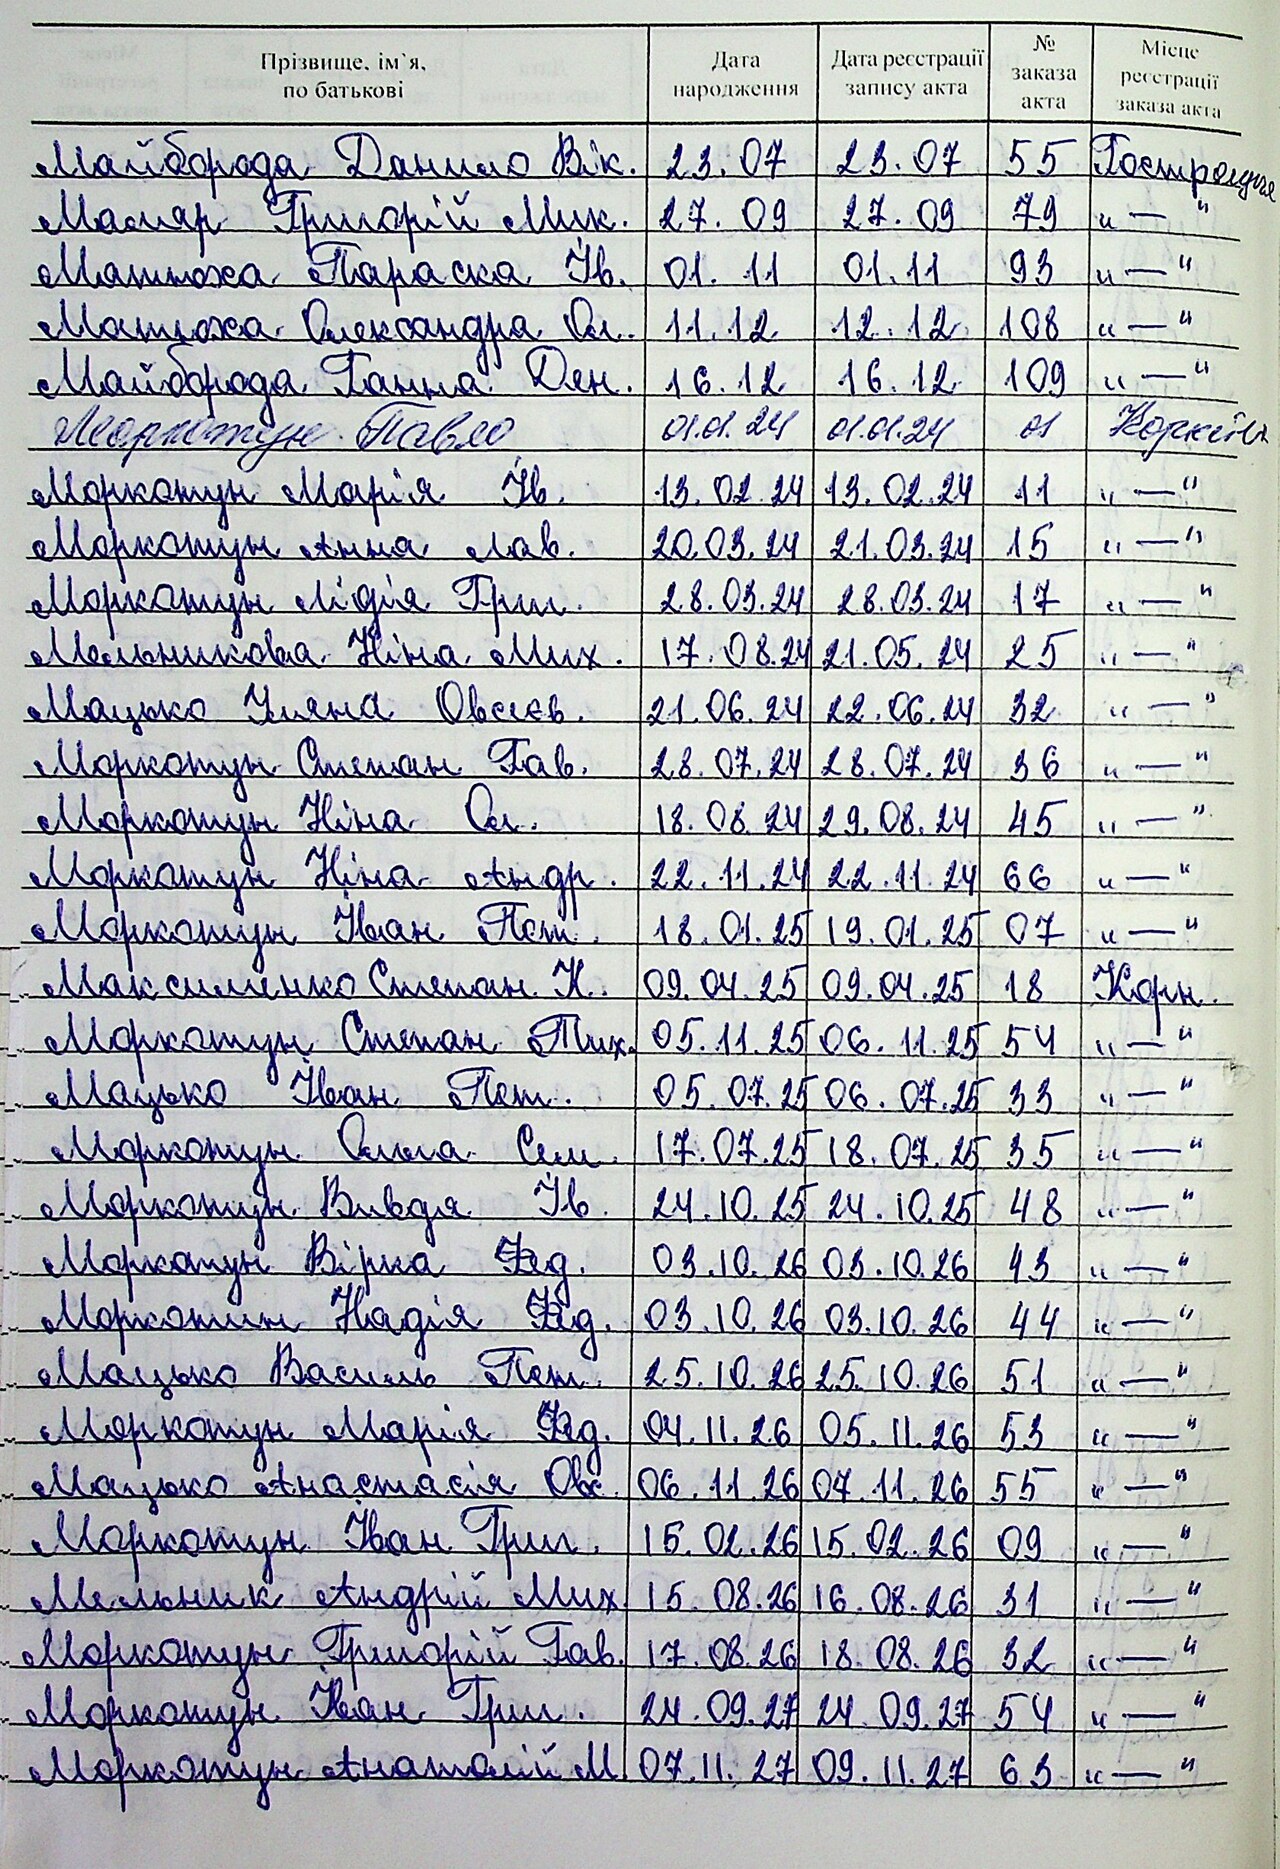 Прізвище, ім`я, по батькові Дата народження Дата реєстрації запису акта № заказа акта Місце реєстрації заказа акта
Майборода Данило Вік. 23.07 23.07 55
Маляр Григорій Мик. 27.09 27.09 79 " — "
Матюха Параска Ів. 01.11 01.11 93 " — "
Матюха Олександра Ол. 11.12 12.12 108 " — "
Майборода Ганна Ден. 16.12 16.12 109 " — "
Моркотун Павло 01.01.24 01.01.24 01
Моркотун Марія Ів. 13.02.24 13.02.24 11 " — "
Моркотун Анна Лав. 20.03.24 21.03.24 15 " — "
Моркотун Лідія Григ. 28.03.24 28.03.24 17 " — "
Мельникова Ніна Мих. 17.08.24 21.05.24 25 " — "
Мацько Уляна Овсієв. 21.06.24 22.06.24 32 " — "
Моркотун Степан Гав. 28.07.24 28.07.24 36 " — "
Моркотун Ніна Ол. 18.08.24 29.08.24 45 " — "
Моркотун Ніна Андр. 22.11.24 22.11.24 66 " — "
Моркотун Іван Пет. 18.01.25 19.01.25 07 " — "
Максименко Степан К. 09.04.25 09.04.25 18 Корн.
Моркотун Степан Тих. 05.11.25 06.11.25 54 " — "
Мацько Іван Пет. 05.07.25 06.07.25 33 " — "
Моркотун Ольга Сем. 17.07.25 18.07.25 35 " — "
Моркотун Вивдя Ів. 24.10.25 24.10.25 48 " — "
Моркотун Вірка Фед. 03.10.26 03.10.26 43 " — "
Моркотин Надія Фед. 03.10.26 03.10.26 44 " — "
Мацько Василь Пет. 25.10.26 25.10.26 51 " — "
Моркотун Марія Фед. 04.11.26 05.11.26 53 " — "
Мацько Анастасія Овс. 06.11.26 07.11.26 55 " — "
Моркотун Іван Григ. 15.02.26 15.02.26 09 " — "
Мельник Андрій Мих. 15.08.26 16.08.26 31 " — "
Моркотун Григорій Гав. 17.08.26 18.08.26 32 " — "
Моркотун Іван Григ. 24.09.27 24.09.27 54 " — "
Моркотун Анатолій М. 07.11.27 09.11.27 63 " — "